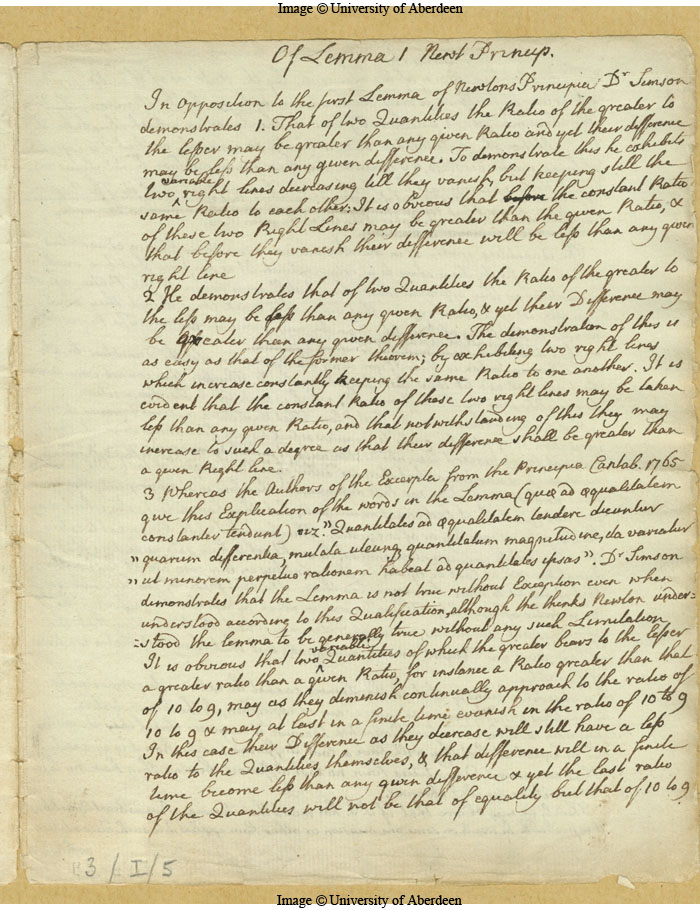 Image © University of Aberdeen
Of Lemma 1 Newt Princip.
In opposition to the first Lemma of Newtons Principia Dr Simson
demonstrates 1. That of two Quantities the Ratio of the greater to
the lesser may be greater than any given Ratio and yet their difference
may be less than any given difference. To demonstrate this he exhibits
two variable right lines decreasing till they vanish, but keeping still the
same Ratio to each other: It is obvious that before the constant Ratio
of these two Right Lines may be greater than the given Ratio, &
that before they vanish their difference will be less than any given
right line
2 He demonstrates that of two Quantities the Ratio of the greater to
the less may be less than any given Ratio, & yet their Difference may
be greater than any given difference. The demonstration of this is
as easy as that of the former theorem; by exhibiting two right lines
which increase constantly keeping the same Ratio to one another. It is
evident that the constant Ratio of these two right lines may be taken
less than any given Ratio, and that notwithstanding of this they may
increase to such a degree as that their difference shall be greater than
a given Right line.
3 Whereas the Authors of the Excerpta from the Principia Cantab. 1765
give this Explication of the words in the Lemma (quæ ad æqualitatem
constanter tendunt) viz. "Quantitates ad æqualitatem tendere dicuntur
" quarum differentia, mutata utcunq quantitatum magnitudine, ita variatur
" ut minorem perpetuo rationem habeat ad quantitates ipsas". Dr Simson
demonstrates that the Lemma is not true without Exception even when
understood according to this Qualification, although he thinks Newton under=
=stood the lemma to be generally true without any such Limitation
It is obvious that two variable Quantities of which the greater bears to the lesser
a greater ratio than a given Ratio, for instance a Ratio greater than that
of 10 to 9, may as they diminish continually approach to the ratio of
10 to 9 & may at last in a finite time evanish in the ratio of 10 to 9
In this case their Difference as they decrease will still have a less
ratio to the Quantities themselves, & that difference will in a finite
time become less than any given difference & yet the last ratio
of the Quantities will not be that of equality but that of 10 to 9
3/I/5
Image © University of Aberdeen